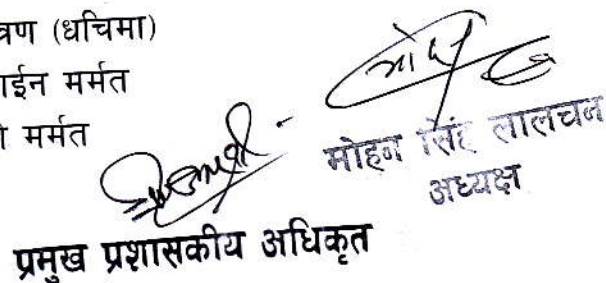 त्रण (धचिमा)
ाईन मर्मत
ो मर्मत
मोहन सिंह लालचन
अध्यक्ष
प्रमुख प्रशासकीय अधिकृत